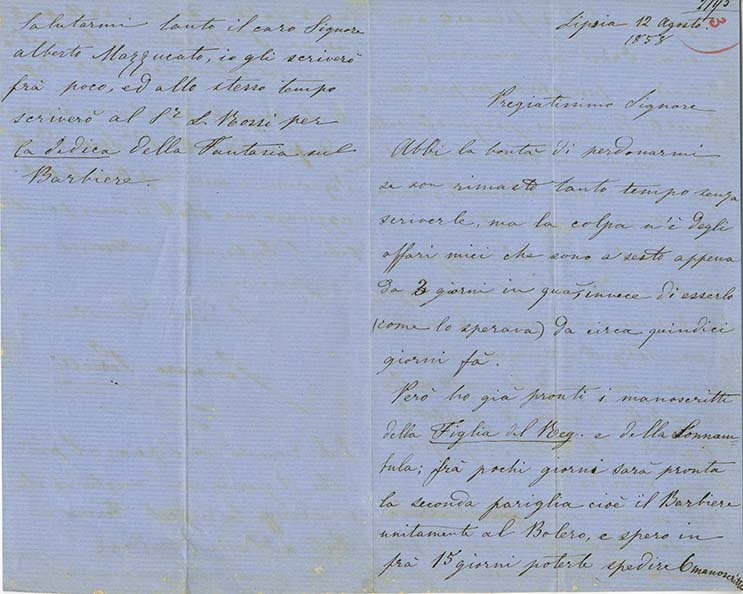 Lipsia 12 Agosto.
1858
3
Pregiatissimo Signore
Abbi la bontà di perdonarmi
se son rimasto tanto tempo senza
scriverle, ma la colpa n'è degli
affari miei che sono a sesto appena
da 2 giorni in quà, invece di esserlo
(come lo sperava) da circa quindici
giorni fà.
Però ho già pronti i manoscritti
della Figlia del Reg. e della Sonnam-
bula; frà pochi giorni sarà pronta
la seconda pariglia cioè il Barbiere
unitamente al Bolero, e spero in
frà 15 giorni poterle spedire 6 manoscritti
Salutarmi tanto il caro Signore
Alberto Mazzucato, io gli scriverò
frà poco, ed allo stesso tempo
scriverò al Sr. L. Rossi per
la dedica della Fantasia sul
Barbiere.